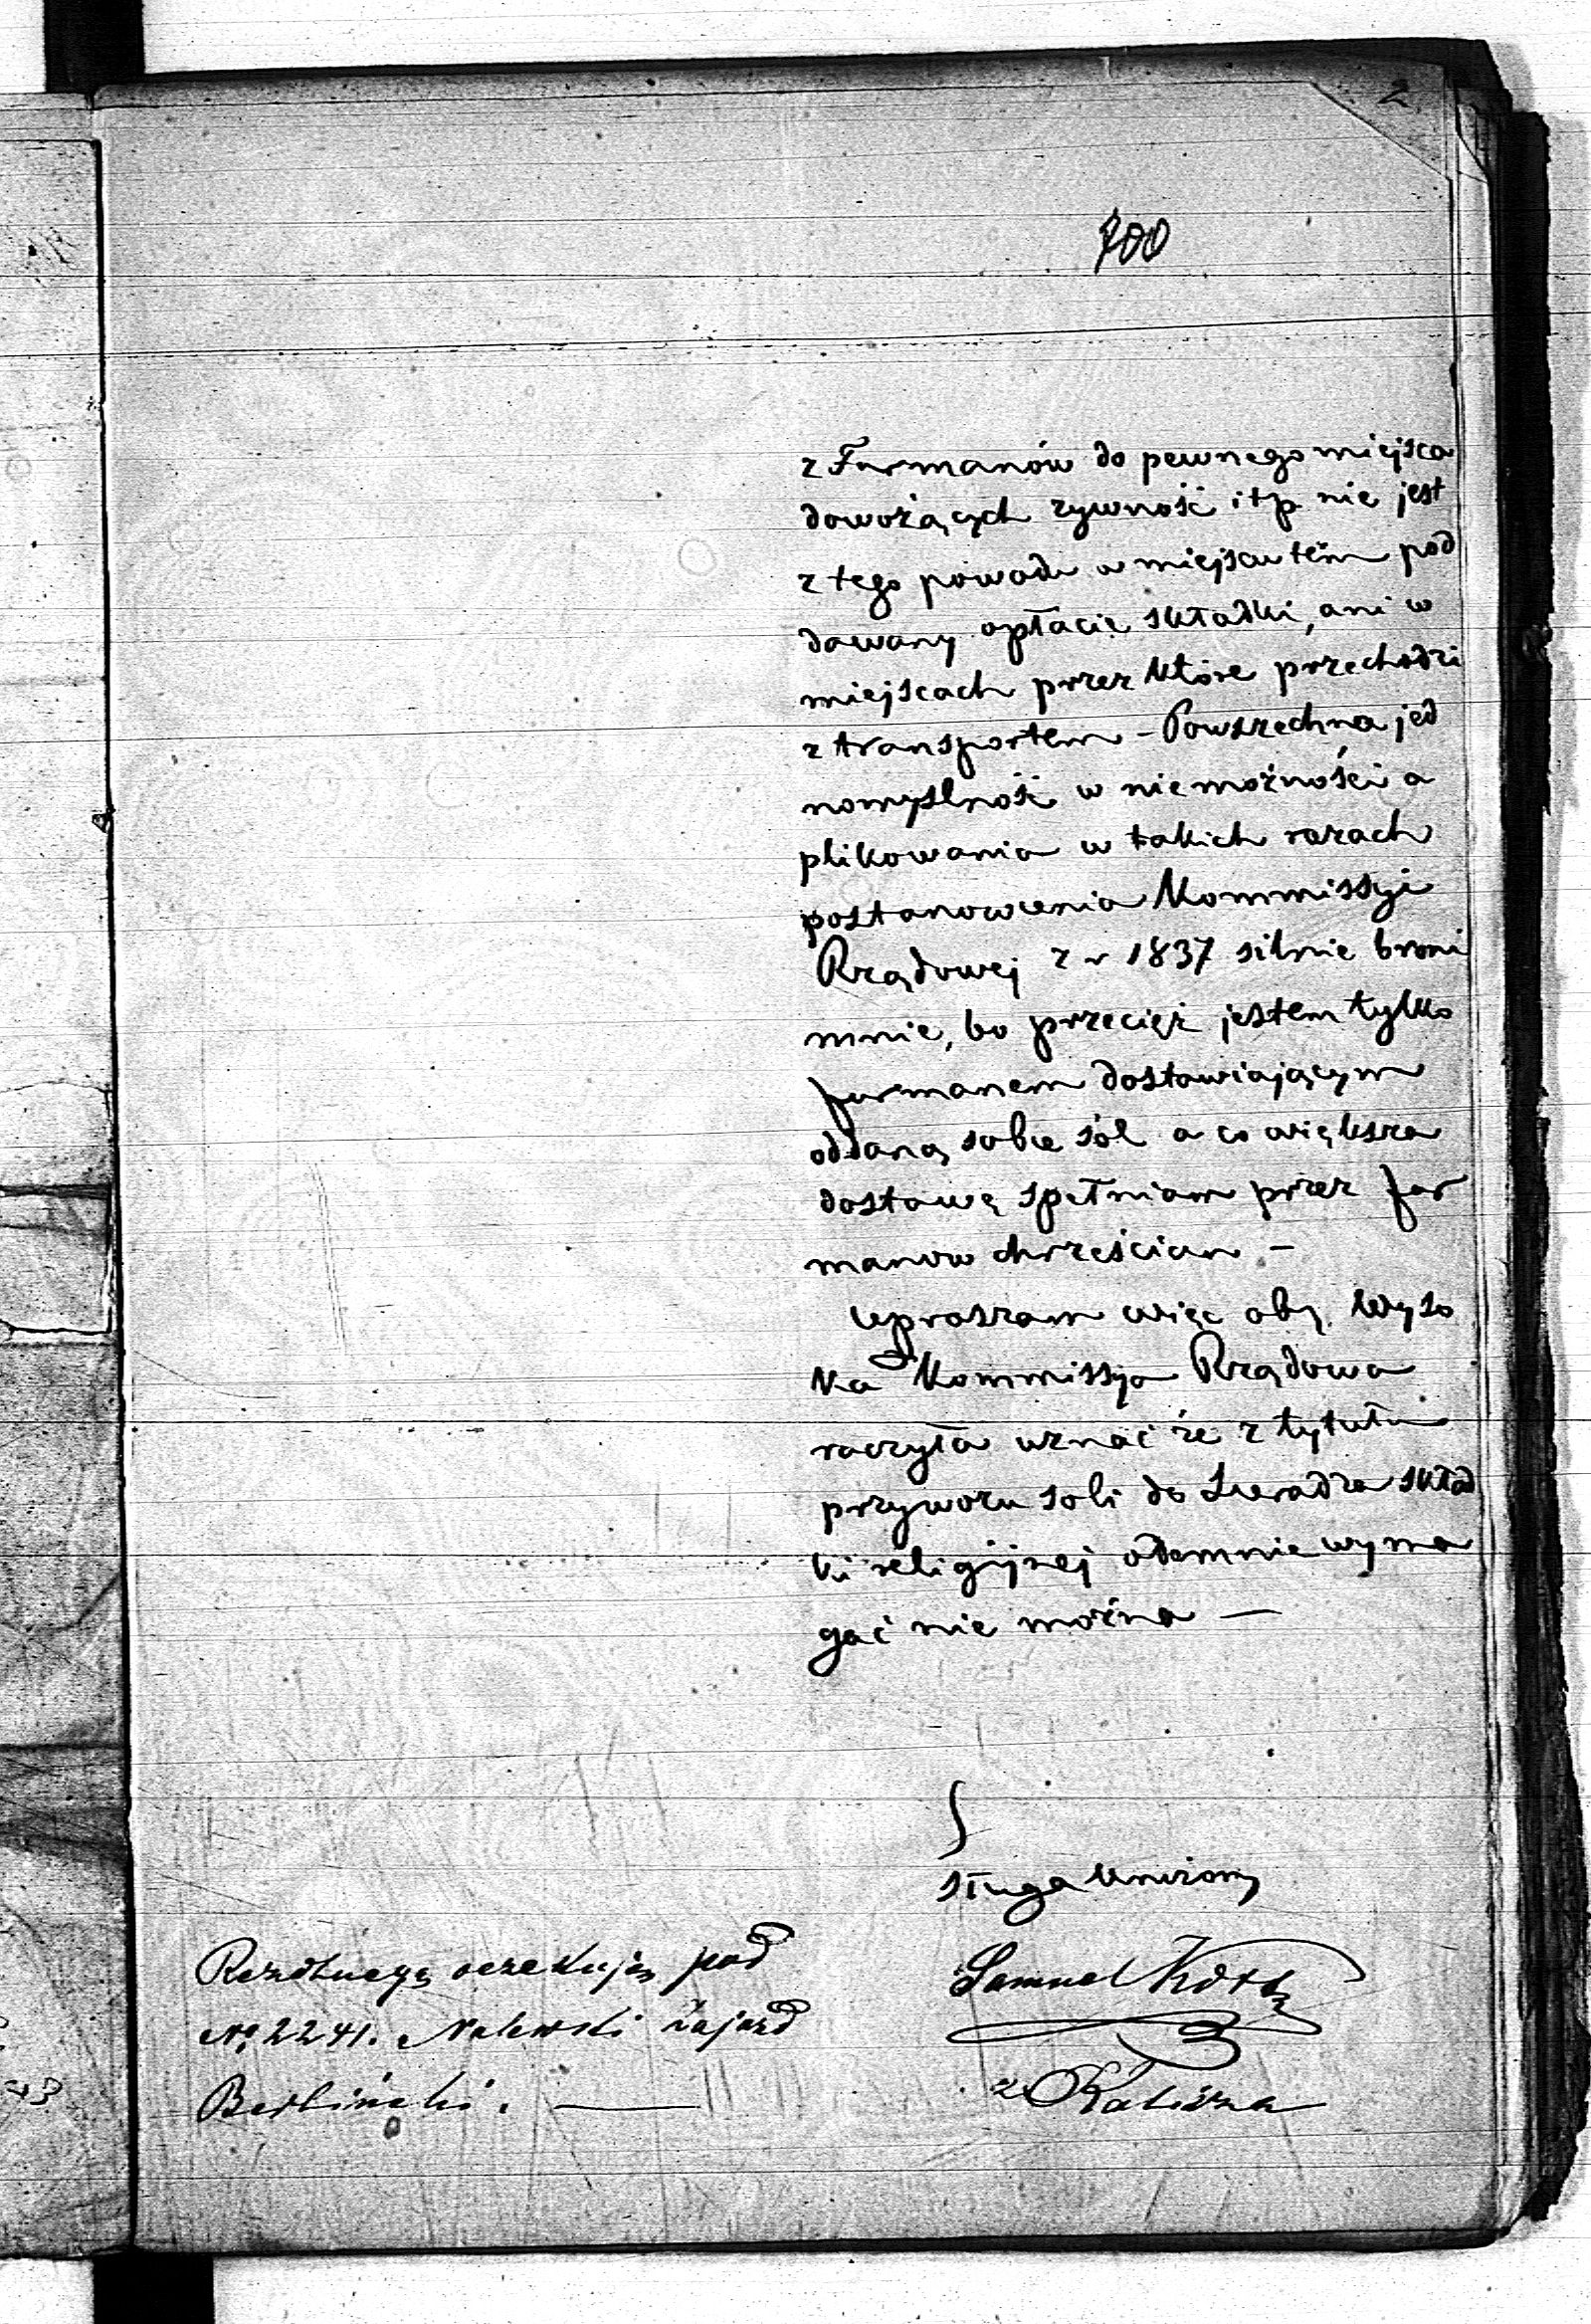 2
700
z Furmanów do pewnego miejsca
dowożących żywność i t p. nie jest
z tego powodu w miejscu tém pod
dawany opłacie składki, ani w
miejscach przez które przechodzi
z transportem – Powszechna jed
nomyślność w niemożności a
plikowania w takich razach
postanowienia Kommissyi
Rządowej z r 1837 silnie broni
mnie, bo przecięż jestem tylko
furmanem dostawiającym
oddaną sobie sól a co większa
dostawę spełniam przez fur
manow chrześcian –
Upraszam więc aby Wyso
ka Kommissya Rządowa
raczyła uznać że z tytułu
przywozu soli do Sieradza skład
ki religijnej odemnie wyma
gać nie można —
Sługa Uniżony
Samuel
z Kalisza
Rezolucyą oczekuję pod
No 2241. Nalewki Zajazd
Berliński. —